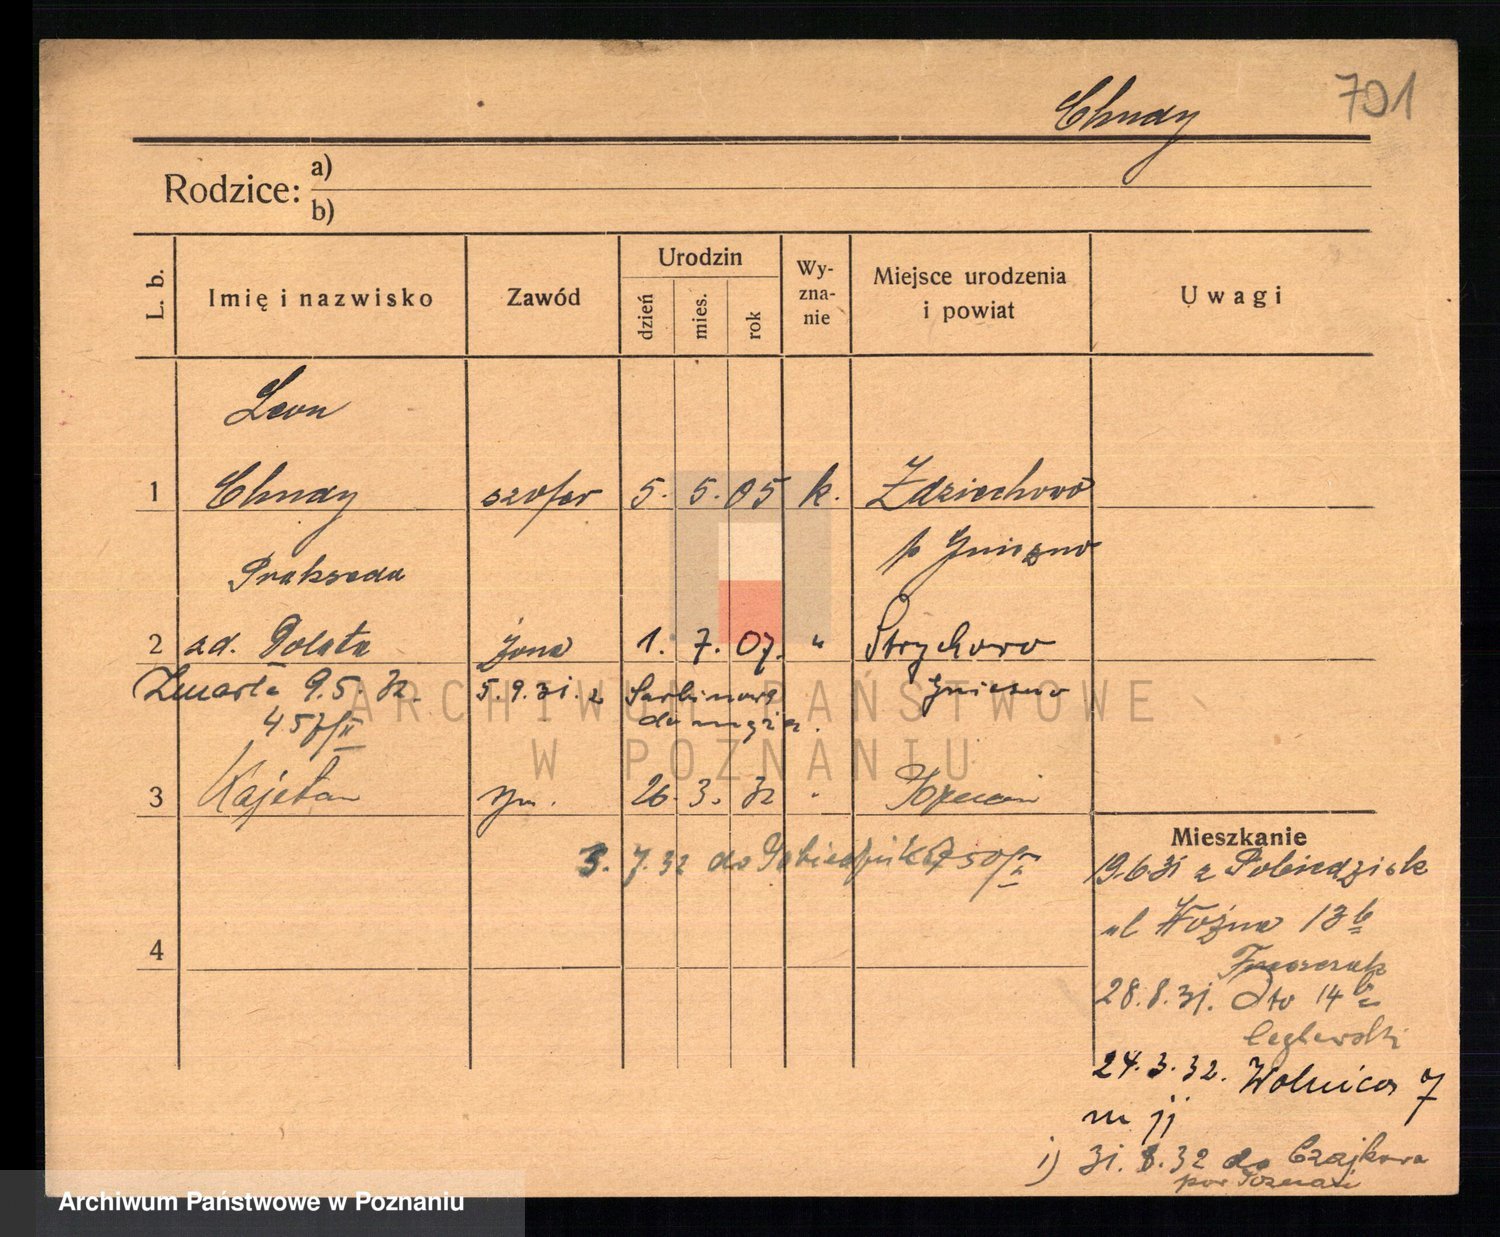 Chudy
701
Rodzice: a)
b)
L. b.
Imię i nazwisko
Zawód
Urodzin
dzień
mies.
rok
Wy-
zna-
nie
Miejsce urodzenia
i powiat
Uwagi
Leon
1 Chudy szofer 5. 5. 05 k. Zdziechowo
p Gniezno
Prakseda
2 zd. Polata żona 1. 7. 07. " Strychowo
Zmarła 9.5.32. 5.9.31. z Sarbinowa Gniezno
do męża.
3 Kajetan syn. 26. 3. 32 " Poznań
Mieszkanie
3. 7. 32 do Pobiedzisk
19.6.31 z Pobiedzisk
ul Woźna 13 b
4
28.8.31. Dto 14
Ceglewski
24.3.32. Wolnica 7
m jj
1) 31.8.32 do Czajkowa
pow Poznań
ARCHIWUM PAŃSTWOWE
W POZNANIU
Archiwum Państwowe w Poznaniu